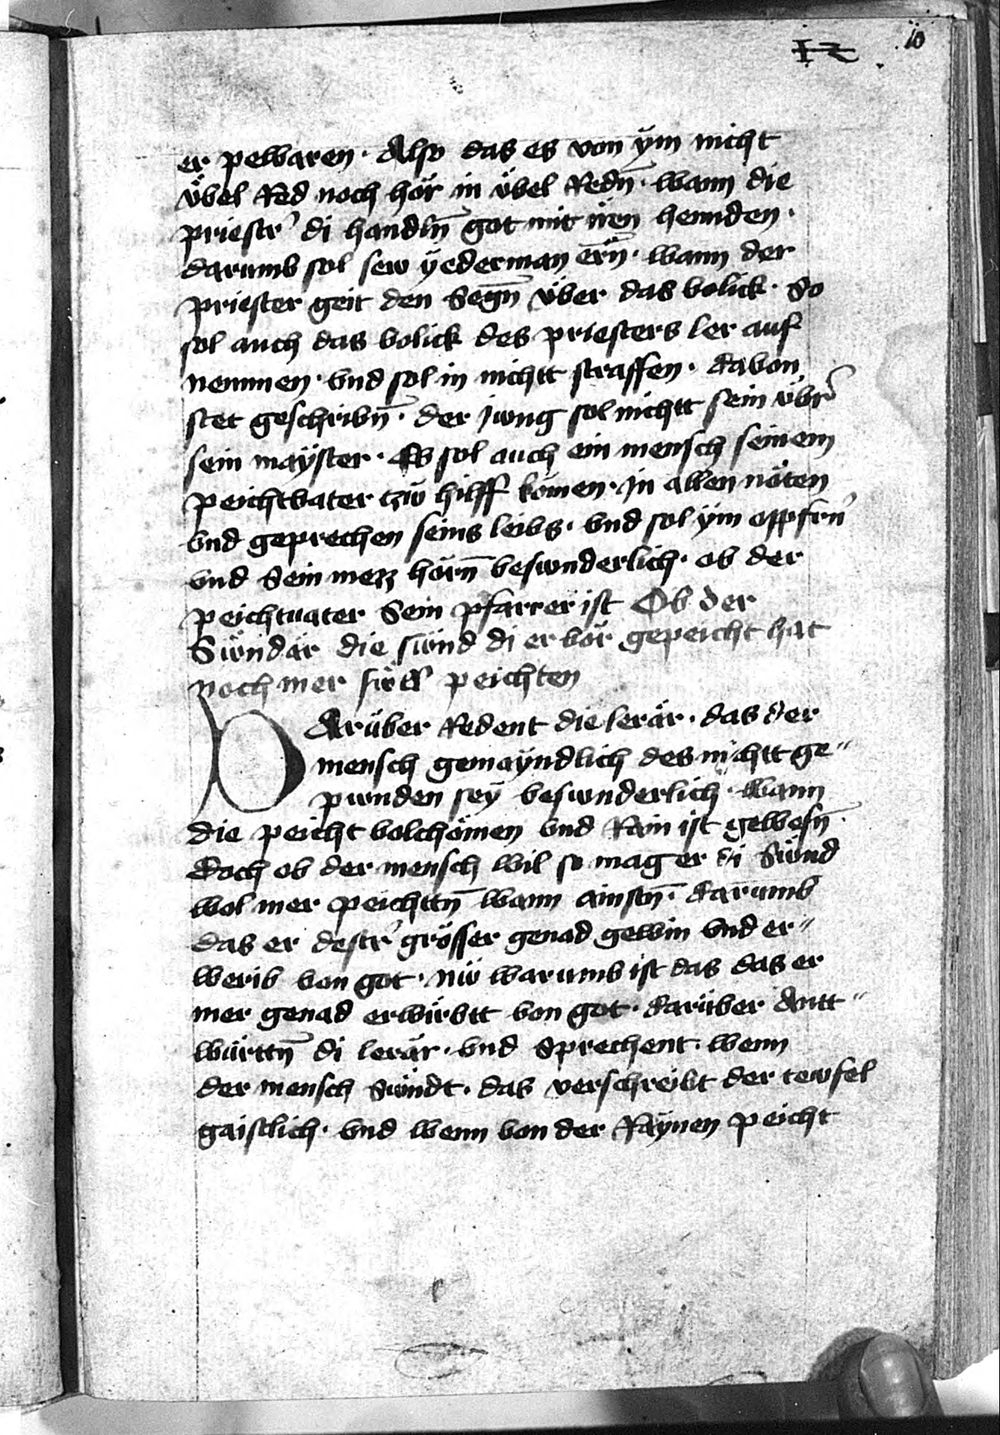 10
er pewaren · Also das es von ÿm nicht
vͤbel Red noch hoͤr in vͤbel Redn̄ · wann die
priestr̄ di handln̄ got mit iren hennden ·
darumb sol sew yederman ern̄ · wann der
priester geit den Segn̄ vͤber das volick · So
sol auch das volick des priesters ler auf
nemmen · vnd sol in nichtt straffen · davon
stet geschribn̄ · der jwng sol nichtt sein vͤbr̄
sein maÿster · Es sol auch ein mensch seinem
peichtvater tzw hilff koͤmen · in allen noͤten
vnd geprechen seins leibs · vnd sol ÿm oppfrn̄
vnd Sein mezz hoͤrn̄ beswnderlich · ob der
peichtuater Sein pfarrer ist Ob der
Swͤndaͤr die swͤnd di er voͤr gepeicht hat
noch mer swͤll peichten
DAruͤber Redent die leraͤr · das der
mensch gemaÿndlich des nichtt ge⸗
pwnden seÿ beswnderlich · wann
die peicht volchoͤmen vnd Rain ist gewesn̄ ·
doch ob der mensch wil so mag er di Swͤnd
wol mer peichttn̄ wann ainstn̄ · darumb
das er destr̄ groͤsser genad gewin vnd er⸗
werib von got · nw warumb ist das das er
mer genad erwirbtt von got · daruͤber Antt⸗
wuͤrttn̄ di leraͤr · vnd Sprechent · wenn
der mensch Swͤndt · das verschreibt der tewfel
gaistlich · vnd wenn von der Raÿnen peicht